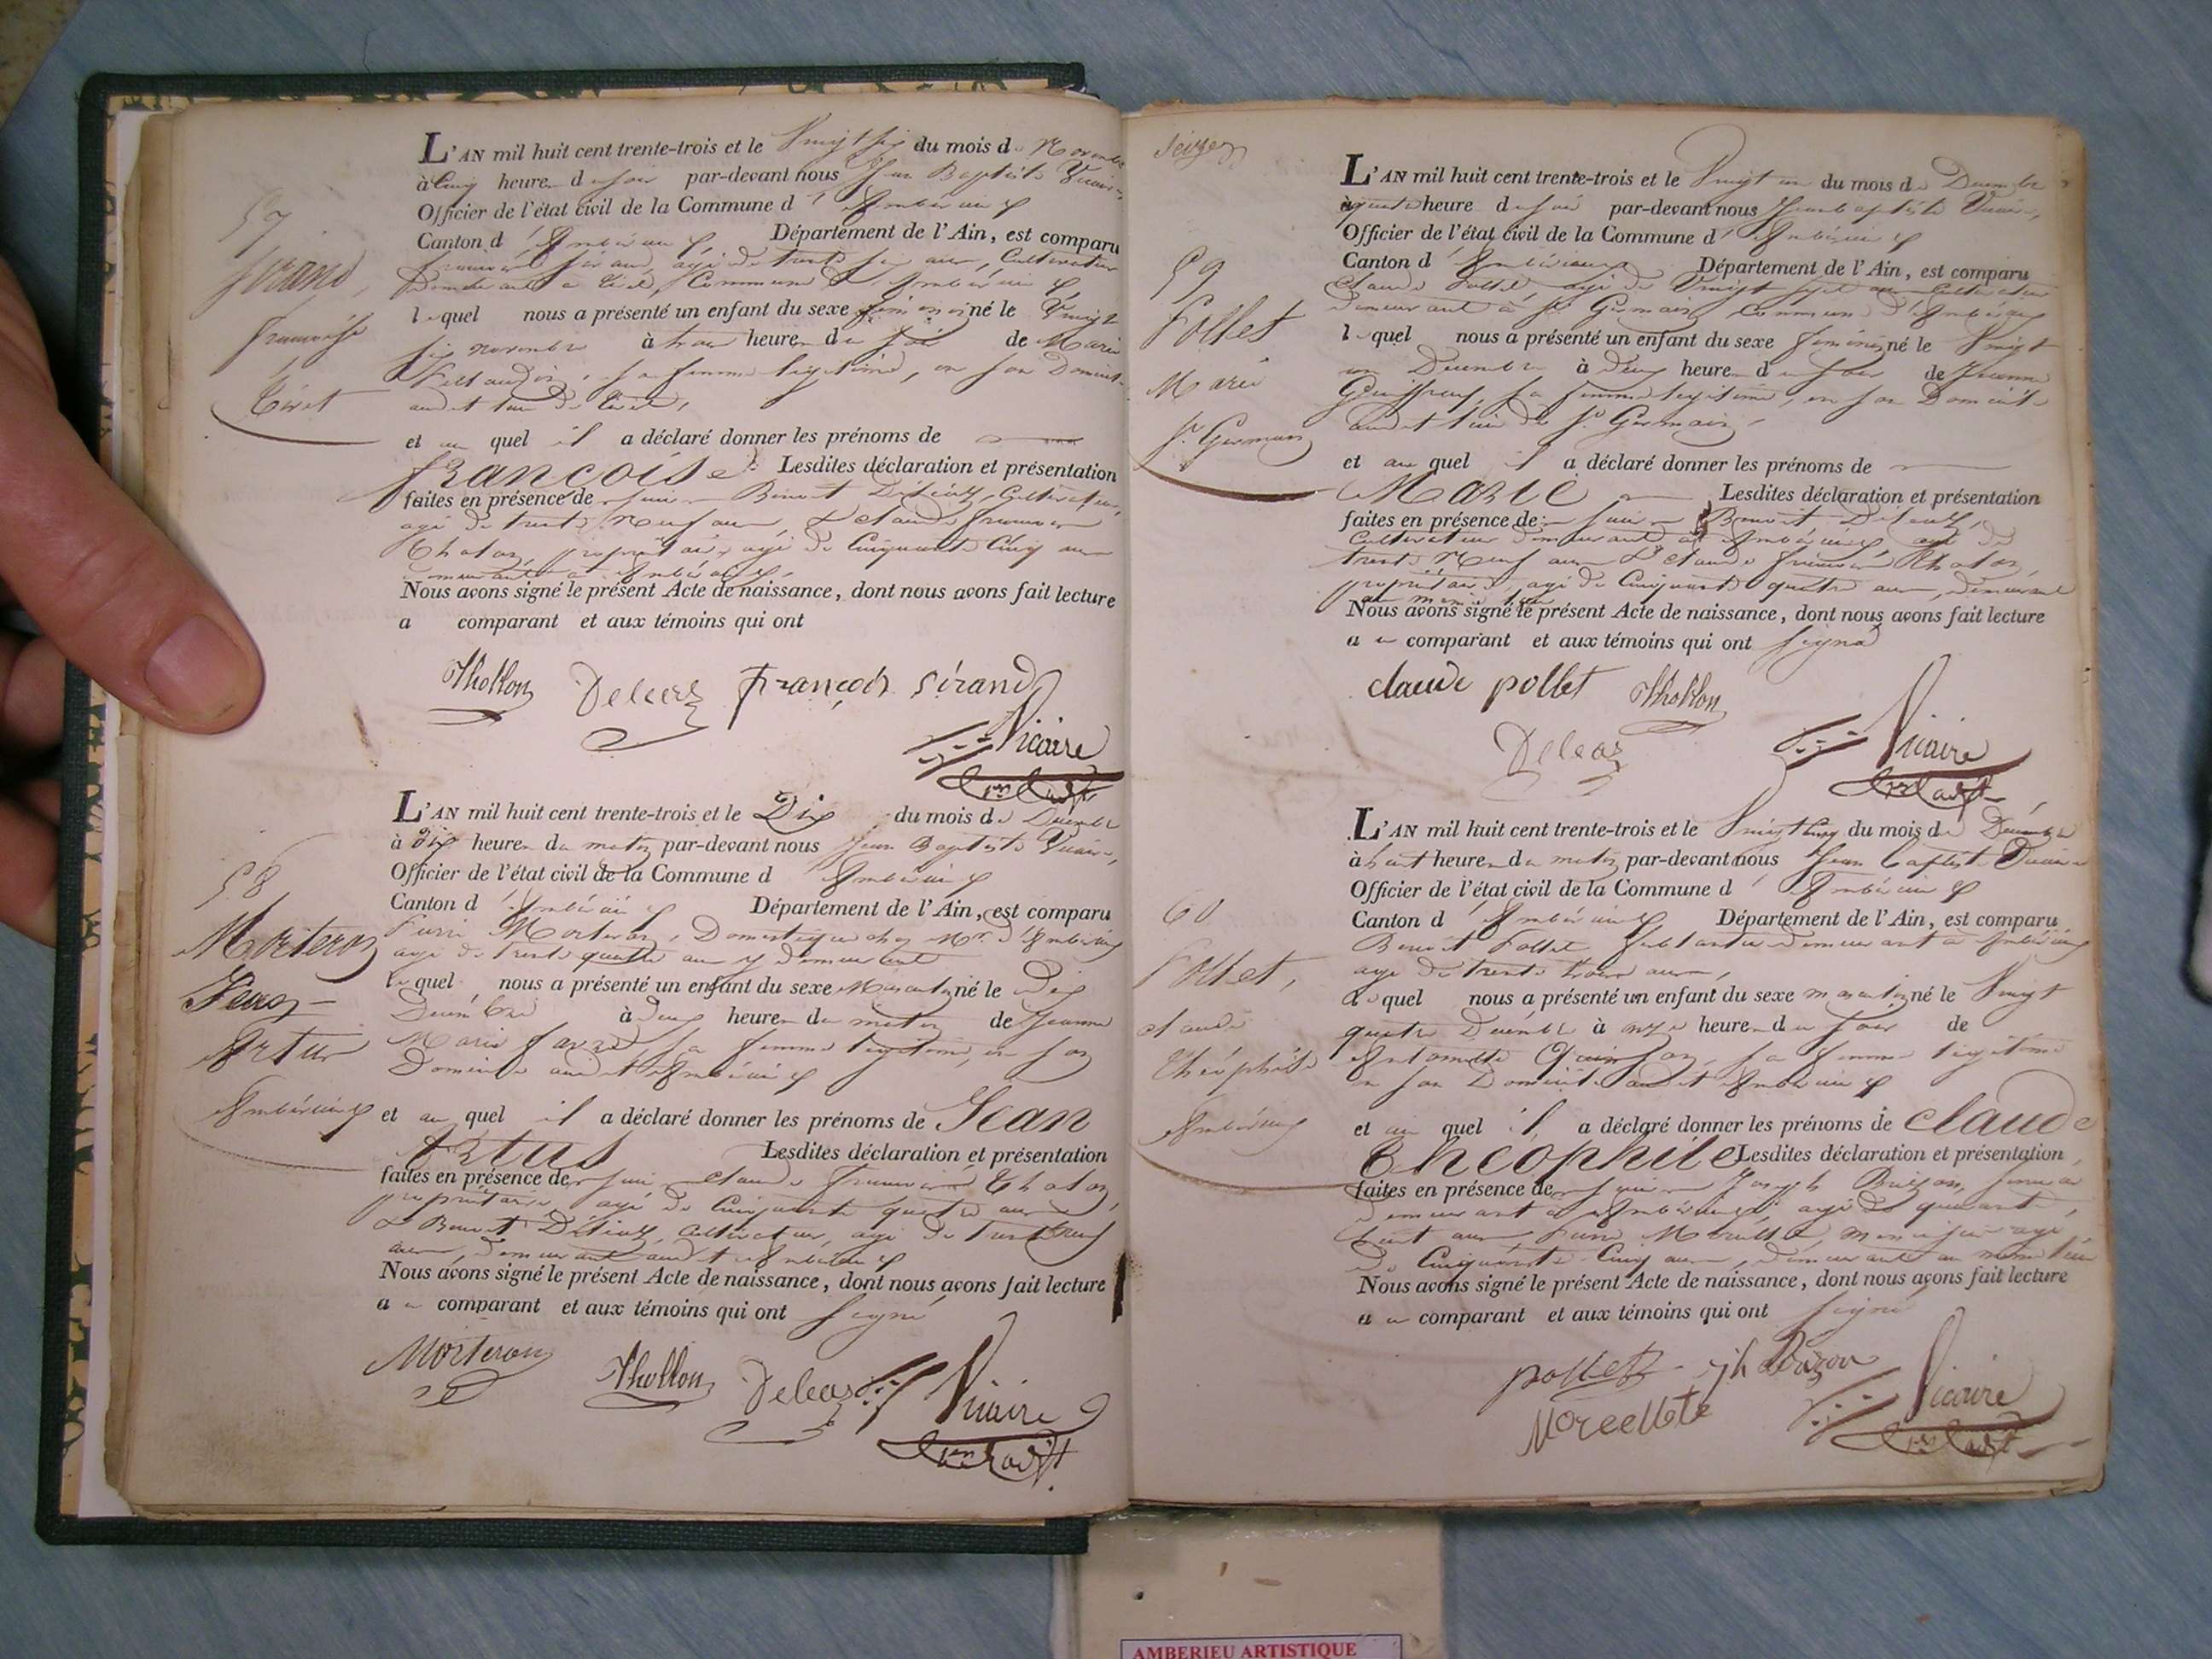 57
Sirand,
françoise
Tiret
L'AN mil huit cent trente-trois et le Vingt six du mois de Novembre
à Cinq heures du soir par-devant nous Jean Baptiste Vicaire,
Officier de l'état civil de la Commune d'Ambérieux
Canton d'Ambérieux Département de l'Ain, est comparu
françois Sirand, agé de trente six ans, Cultivateur
Demeurant a Tiret, Commune d'Ambérieux
lequel nous a présenté un enfant du sexe féminin né le Vingt
six novembre à trois heures du soir de Marie
sa femme légitime, en son Domicile
audit lieu de Tiret,
et au quel il a déclaré donner les prénoms de
françoise Lesdites déclaration et présentation
faites en présence de Benoit Cultivateur,
agé de trente neuf ans, & Claude françois
Tholon, propriétaire, agé de Cinquante Cinq ans
demeurants a Ambérieux,
Nous avons signé le présent Acte de naissance, dont nous avons fait lecture
a comparant et aux témoins qui ont
Thollon françois Sirand
Vicaire
58
Morteron
Jean
Artus
Ambérieux
L'AN mil huit cent trente-trois et le Dix du mois de Décembre
à dix heures du matin par-devant nous Jean Baptiste Vicaire,
Officier de l'état civil de la Commune d'Ambérieux
Canton d'Ambérieux Département de l'Ain, est comparu
Pierre Morteron, Domestique chez Mr. d'Ambérieux
agé de trente quatre ans y demeurant
lequel nous a présenté un enfant du sexe Masculin né le Dix
Décembre à Deux heures du matin de Jeanne
Marie sa femme légitime, en son
Domicile audit Ambérieux
et au quel il a déclaré donner les prénoms de Jean
Artus Lesdites déclaration et présentation
faites en présence de Claude françois Tholon,
propriétaire agé de Cinquante quatre ans
& Benoit Cultivateur, agé de trente neuf
ans, demeurant audit Ambérieux
Nous avons signé le présent Acte de naissance, dont nous avons fait lecture
a u comparant et aux témoins qui ont signé
Morteron Thollon Vicaire
59
Pollet
Marie
St. Germain
L'AN mil huit cent trente-trois et le Vingt un du mois de Décembre
à quatre heure du soir par-devant nous Jean baptiste Vicaire,
Officier de l'état civil de la Commune d'Ambérieux
Canton d'Ambérieux Département de l'Ain, est comparu
Claude Pollet, agé de Vingt sept ans Cultivateur
demeurant à St. Germain, Commune d'Ambérieux
lequel nous a présenté un enfant du sexe féminin né le Vingt
un Décembre à Deux heures du soir de Jeanne
sa femme légitime, en son Domicile
audit lieu de St. Germain,
et au quel il a déclaré donner les prénoms de
Marie Lesdites déclaration et présentation
faites en présence de Benoit
Cultivateur demeurant a Ambérieux, agé de
trente neuf ans & Claude françois Tholon,
propriétaire agé de Cinquante quatre ans, demeurant
au même lieu
Nous avons signé le présent Acte de naissance, dont nous avons fait lecture
a u comparant et aux témoins qui ont signé
claude pollet Thollon
Vicaire
60
Pollet,
claude
Théophile
Ambérieux
L'AN mil huit cent trente-trois et le Vingt Cinq du mois de Décembre
à huit heures du matin par-devant nous Jean baptiste Vicaire
Officier de l'état civil de la Commune d'Ambérieux
Canton d'Ambérieux Département de l'Ain, est comparu
Benoit Pollet demeurant a Ambérieux
agé de trente trois ans,
lequel nous a présenté un enfant du sexe masculin né le Vingt
quatre Décembre à onze heures du soir de
Antoinette sa femme légitime
en son Domicile audit Ambérieux
et au quel il a déclaré donner les prénoms de claude
Théophile Lesdites déclaration et présentation
faites en présence de Joseph
demeurant a Ambérieux agé de quarante
huit ans Pierre menuisier agé
de Cinquante Cinq ans, demeurant au même lieu
Nous avons signé le présent Acte de naissance, dont nous avons fait lecture
a u comparant et aux témoins qui ont signé
pollet
Vicaire
AMBERIEU ARTISTIQUE